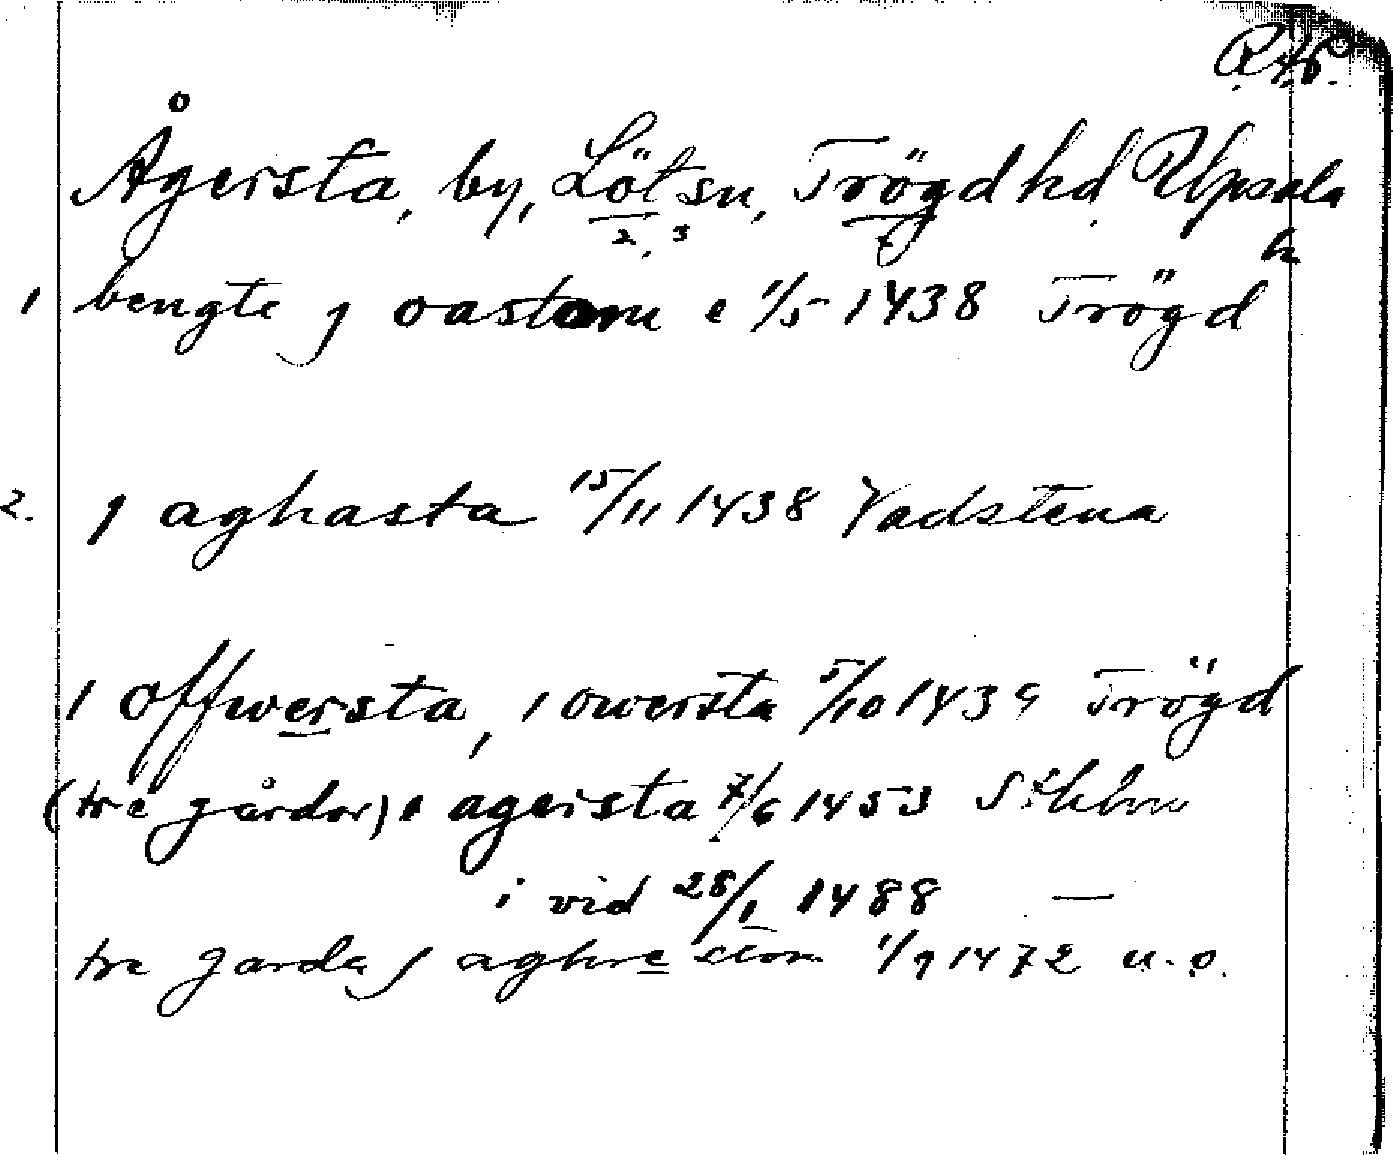 Ågersta, by, Löt sn, Trögd hd Upsala
2, 3
1 bengte j oastom e 1/5 1438 Trögd
2. j aghasta 15/11 1438 Vadstena
i offwersta, i owersta 5/10 1439 Trögd
(tre gårdar) i agersta 7/6 1453 Sthlm
i vid 28/1 1488 —
tre garda j aghre 1/9 1472 u. o.